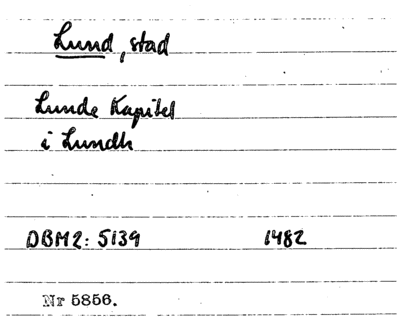 Lund, stad
Lunde Kapitel
i Lundh
DBM2: 5139 1482
Nr 5856.